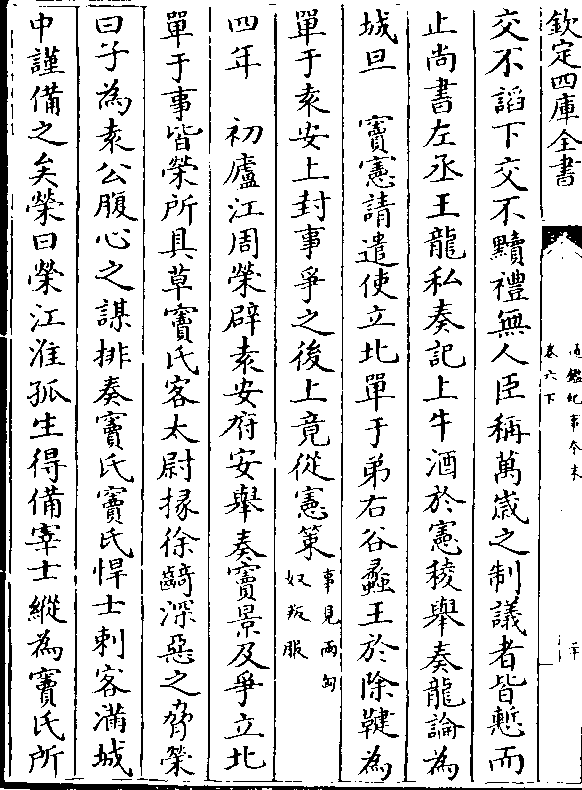 欽定四庫全書
通鑑紀事本末
卷六下
二十
交不謟下交不黷禮無人臣稱萬歲之制議者皆慙而
止尚書左丞王龍私奏記上牛酒於憲稜舉奏龍論為
城旦　竇憲請遣使立北單于弟右谷蠡王於除鞬為
單于袁安上封事爭之後上竟從憲策事見兩匈奴叛服
四年　初廬江周榮辟袁安府安舉奏竇景及爭立北
單于事皆榮所具草竇氏客太尉掾徐齮深惡之脅榮
曰子為袁公腹心之謀排奏竇氏竇氏悍士刺客滿城
中謹備之矣榮曰榮江淮孤生得備宰士縱為竇氏所